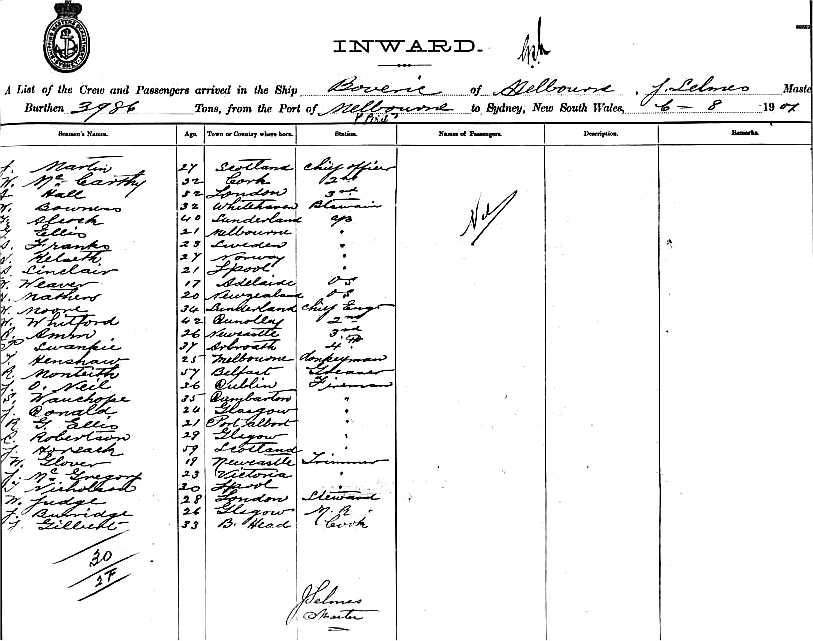 INWARD.
A List of the Crew and Passengers arrived in the Ship Boveric of Melbourne, J. Selmes Maste
Burthen 3986 Tons, from the Port of Melbourne to Sydney, New South Wales, 6 - 8 190
Seaman's Names. Age. Town or Country where born. Station. Names of Passengers. Description. Remarks.
Martin 27 Scotland Chief Officer
W. McCarthy 32 Cork 2nd
Hall 32 London 3rd
W. Bowness 32 Whitehaven
Alcock 40 Sunderland
Ellis 21 Melbourne "
Franks 23 Sweden "
Kelseth 27 Norway "
Sinclair 21 L'pool "
Weaver 17 Adelaide OS
Mathers 20 Newzealand OS
W. Moore 34 Sunderland Chief Engr
W. Whitford 42 2nd
Amm 26 Newcastle 3rd
Swankie 37 Arbroath 4th
Henshaw 25 Melbourne Donkeyman
R. Monteith 57 Belfast Greaser
J. O. Neil 36 Dublin Fireman
S. Wauchope 35 Dumbarton "
J. Donald 24 Glasgow "
R. G. Ellis 21 Port Talbot "
C. Robertson 29 Glsgow "
59 Scotland "
W. Glover 19 Newcastle Trimmer
McGregor 23 Victoria "
Nicholson 20 L'pool "
W. Judge 28 London Steward
J. Burridge 26 Glsgow M. R.
Gilbert 33 B. Head Cook
Nil
30
J Selmes
Master